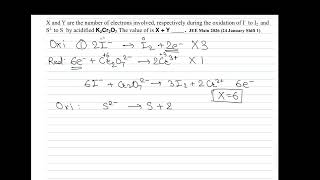 X and Y are the number of electrons involved, respectively during the oxidation of I⁻ to I₂ and
S²⁻ to S by acidified K₂Cr₂O₇. The value of is X + Y ____. JEE Main 2026 (24 January Shift 1)
Oxi: ① 2I⁻ → I₂ + 2e⁻ X 3
Red: 6e⁻ + Cr₂O₇²⁻ → 2Cr³⁺ X 1
6I⁻ + Cr₂O₇²⁻ → 3I₂ + 2Cr³⁺ 6e⁻
X=6
Oxi: S²⁻ → S + 2